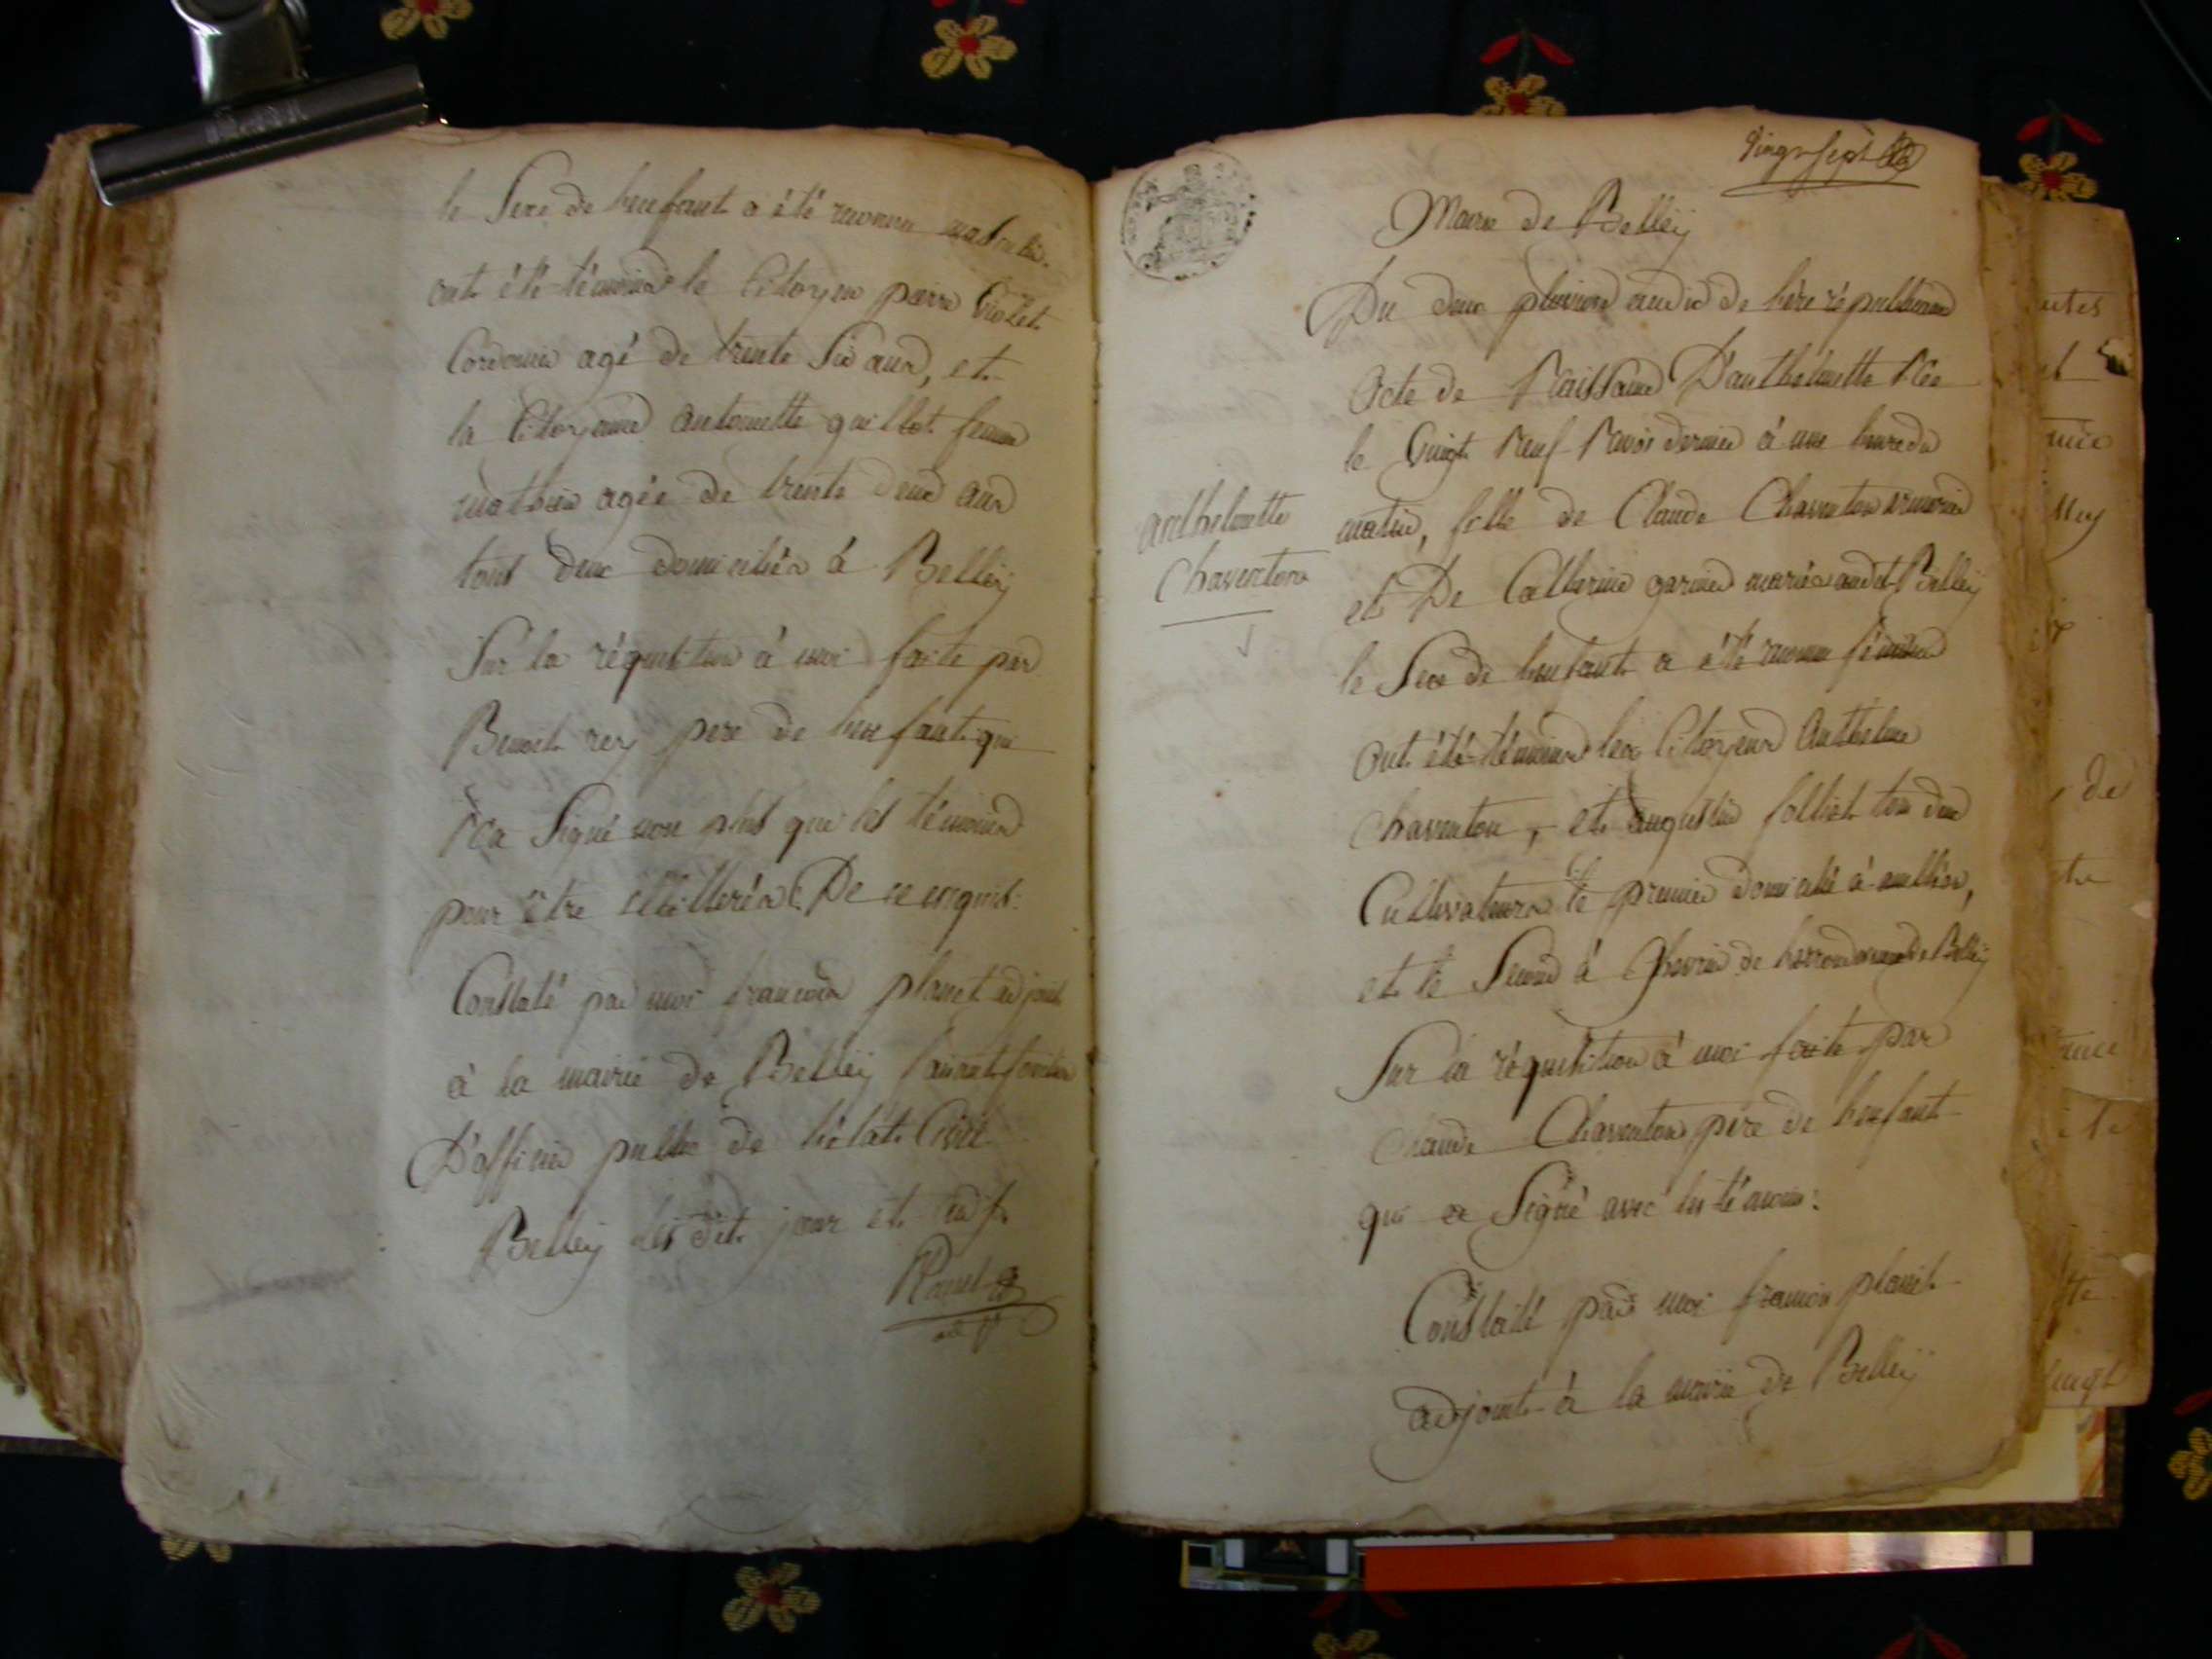 le Sexe de lenfant a été reconnu masculin.
ont été témoins le Citoyen pierre Violet
Cordonnier agé de trente Six ans, et
la Citoyenne antoinette guillot femme
mathieu agée de trente deux ans
tous deux domiciliés à Belley
Sur la réquisition à moi faite par
Benoit rey pere de lenfant qui
Na Signé non plus que les témoins
pour être illitterés De ce enquis:
Constaté par moi francois planet adjoint
à la mairie de Belley faisant fonction
D'officier public de l'état Civil
Belley lesdit jour et an
vingt sept
Mairie de Belley
Du deux pluviose an dix de l'ère républicaine
Acte de Naissance D'anthelmette Née
le Vingt Neuf Nivos dernier à une heure du
matin, fille de Claude Chaventon
et De Catherine mariés audit Belley
le Sexe de lenfant a été reconnu féminin
ont été témoins les Citoyens Anthelme
Chaventon, et augustin folliet tous deux
Cultivateurs le premier domicilié à
et le Second à de larrondissement de Belley
Sur la réquisition à moi faite par
Claude Chaventon père de lenfant
qui a Signé avec les témoins:
Constaté par moi francois planet
adjoint à la mairie de Belley
anthelmette
Chaventon